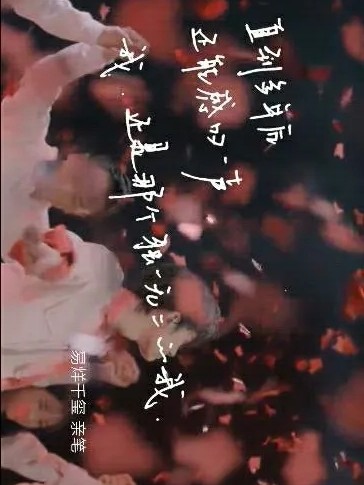 直到多年后
还能感叹一声
我.还是那个独一无二的我.
易烊千玺 亲笔